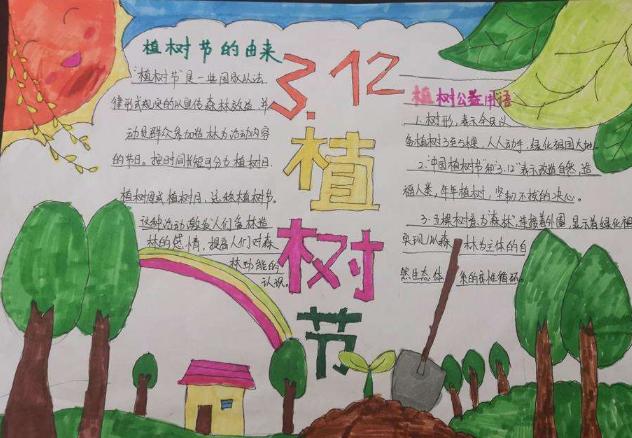 植树节的由来
"植树节"是一些国家以法
律形式规定的以宣传森林效益,并
动员群众参加造林为活动内容
的节日。按时间长短可分为植树日、
植树周或植树月,总称植树节。
这种活动,激发人们爱林造
林的感情,提高人们对森
林功能的
认识。
3.12
植
树
节
植树公益用语
1.树形,表示全民义
务植树3至5棵,人人动手,绿化祖国大地。
2."中国植树节"和"3.12"表示改造自然,造
福人类,年年植树,坚韧不拔的决心。
3.五棵树意为"森林",并接着外圈,显示着绿化祖
实现以森林为主体的自
然生态体系的良性循环。